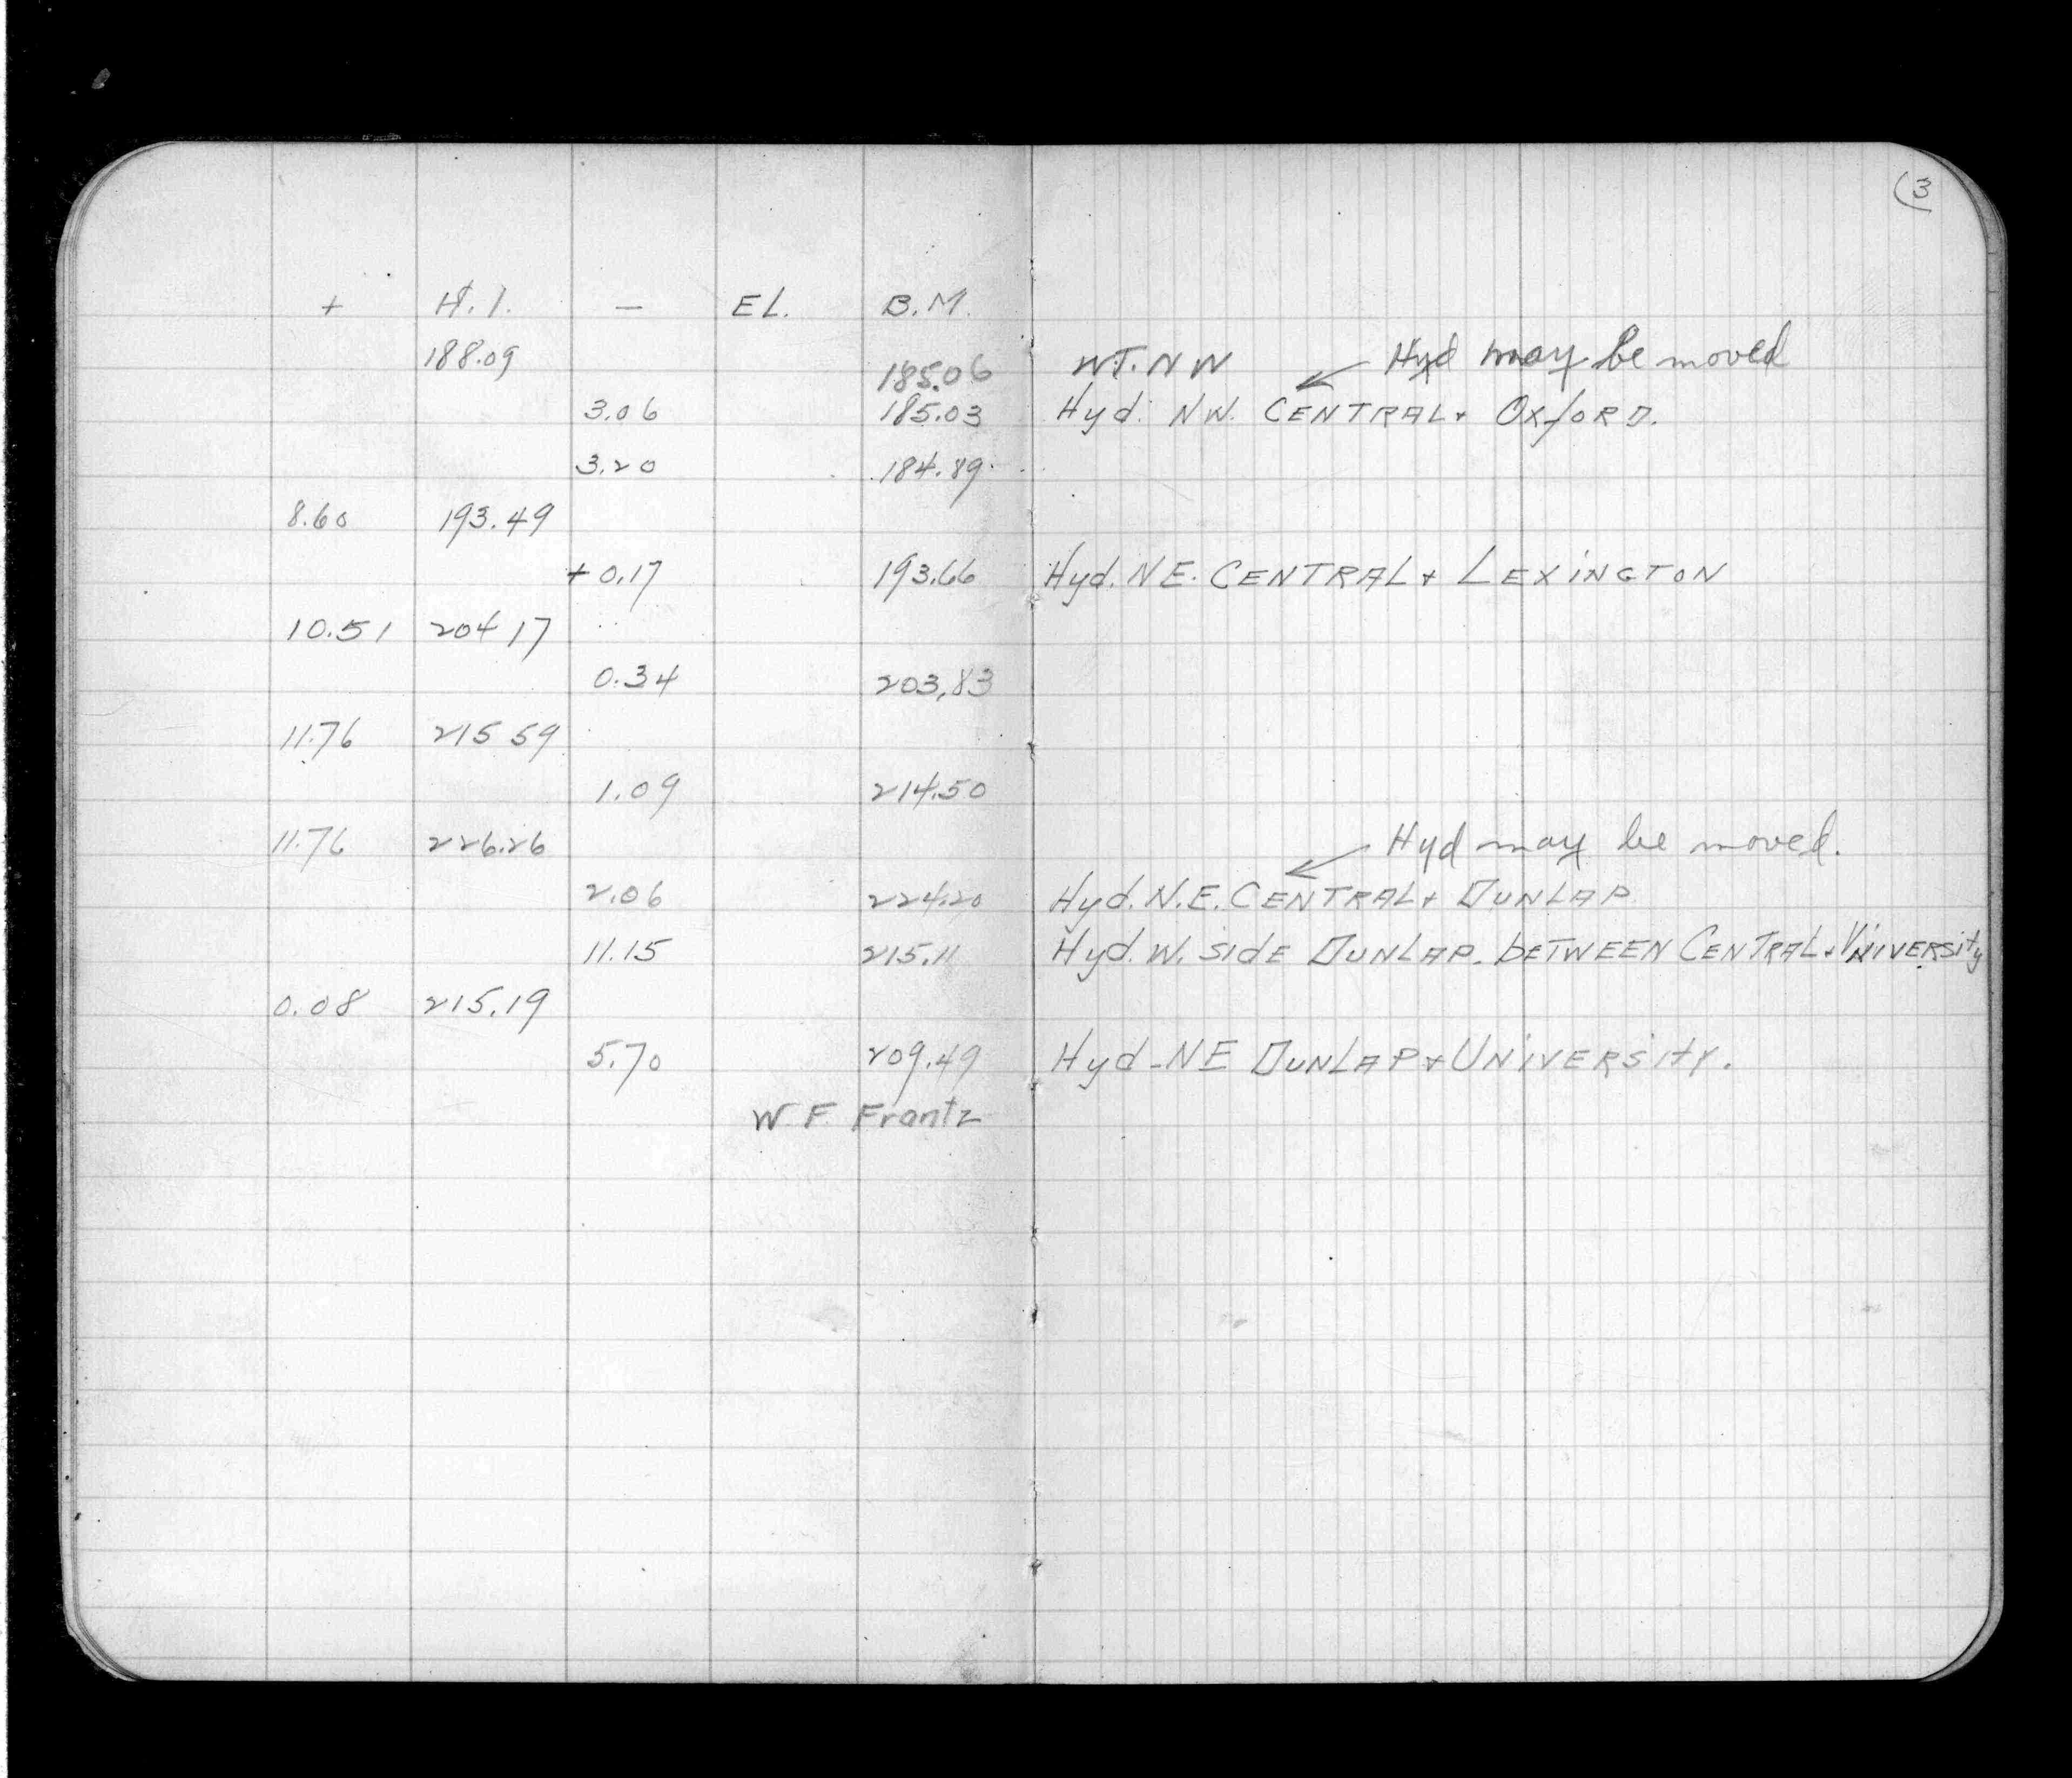 3
+ H.I. — EL. B.M.
188.09 Hyd may be moved
185.06 W.T. N W
3.06 185.03 Hyd. NW. CENTRAL & OXFORD.
3.20 184.89
8.60 193.49
+ 0.17 193.66 Hyd. NE. CENTRAL & LEXINGTON
10.51 204 17
0.34 203.83
11.76 215 59
1.09 214.50
11.76 226.26 Hyd may be moved.
2.06 224.20 Hyd. N.E. CENTRAL & DUNLAP
11.15 215.11 Hyd. W. SIDE DUNLAP. bETWEEN CENTRAL & UNIVERSity
0.08 215.19
5.70 209.49 Hyd - NE DUNLAP & UNIVERSITY.
W. F. Frantz